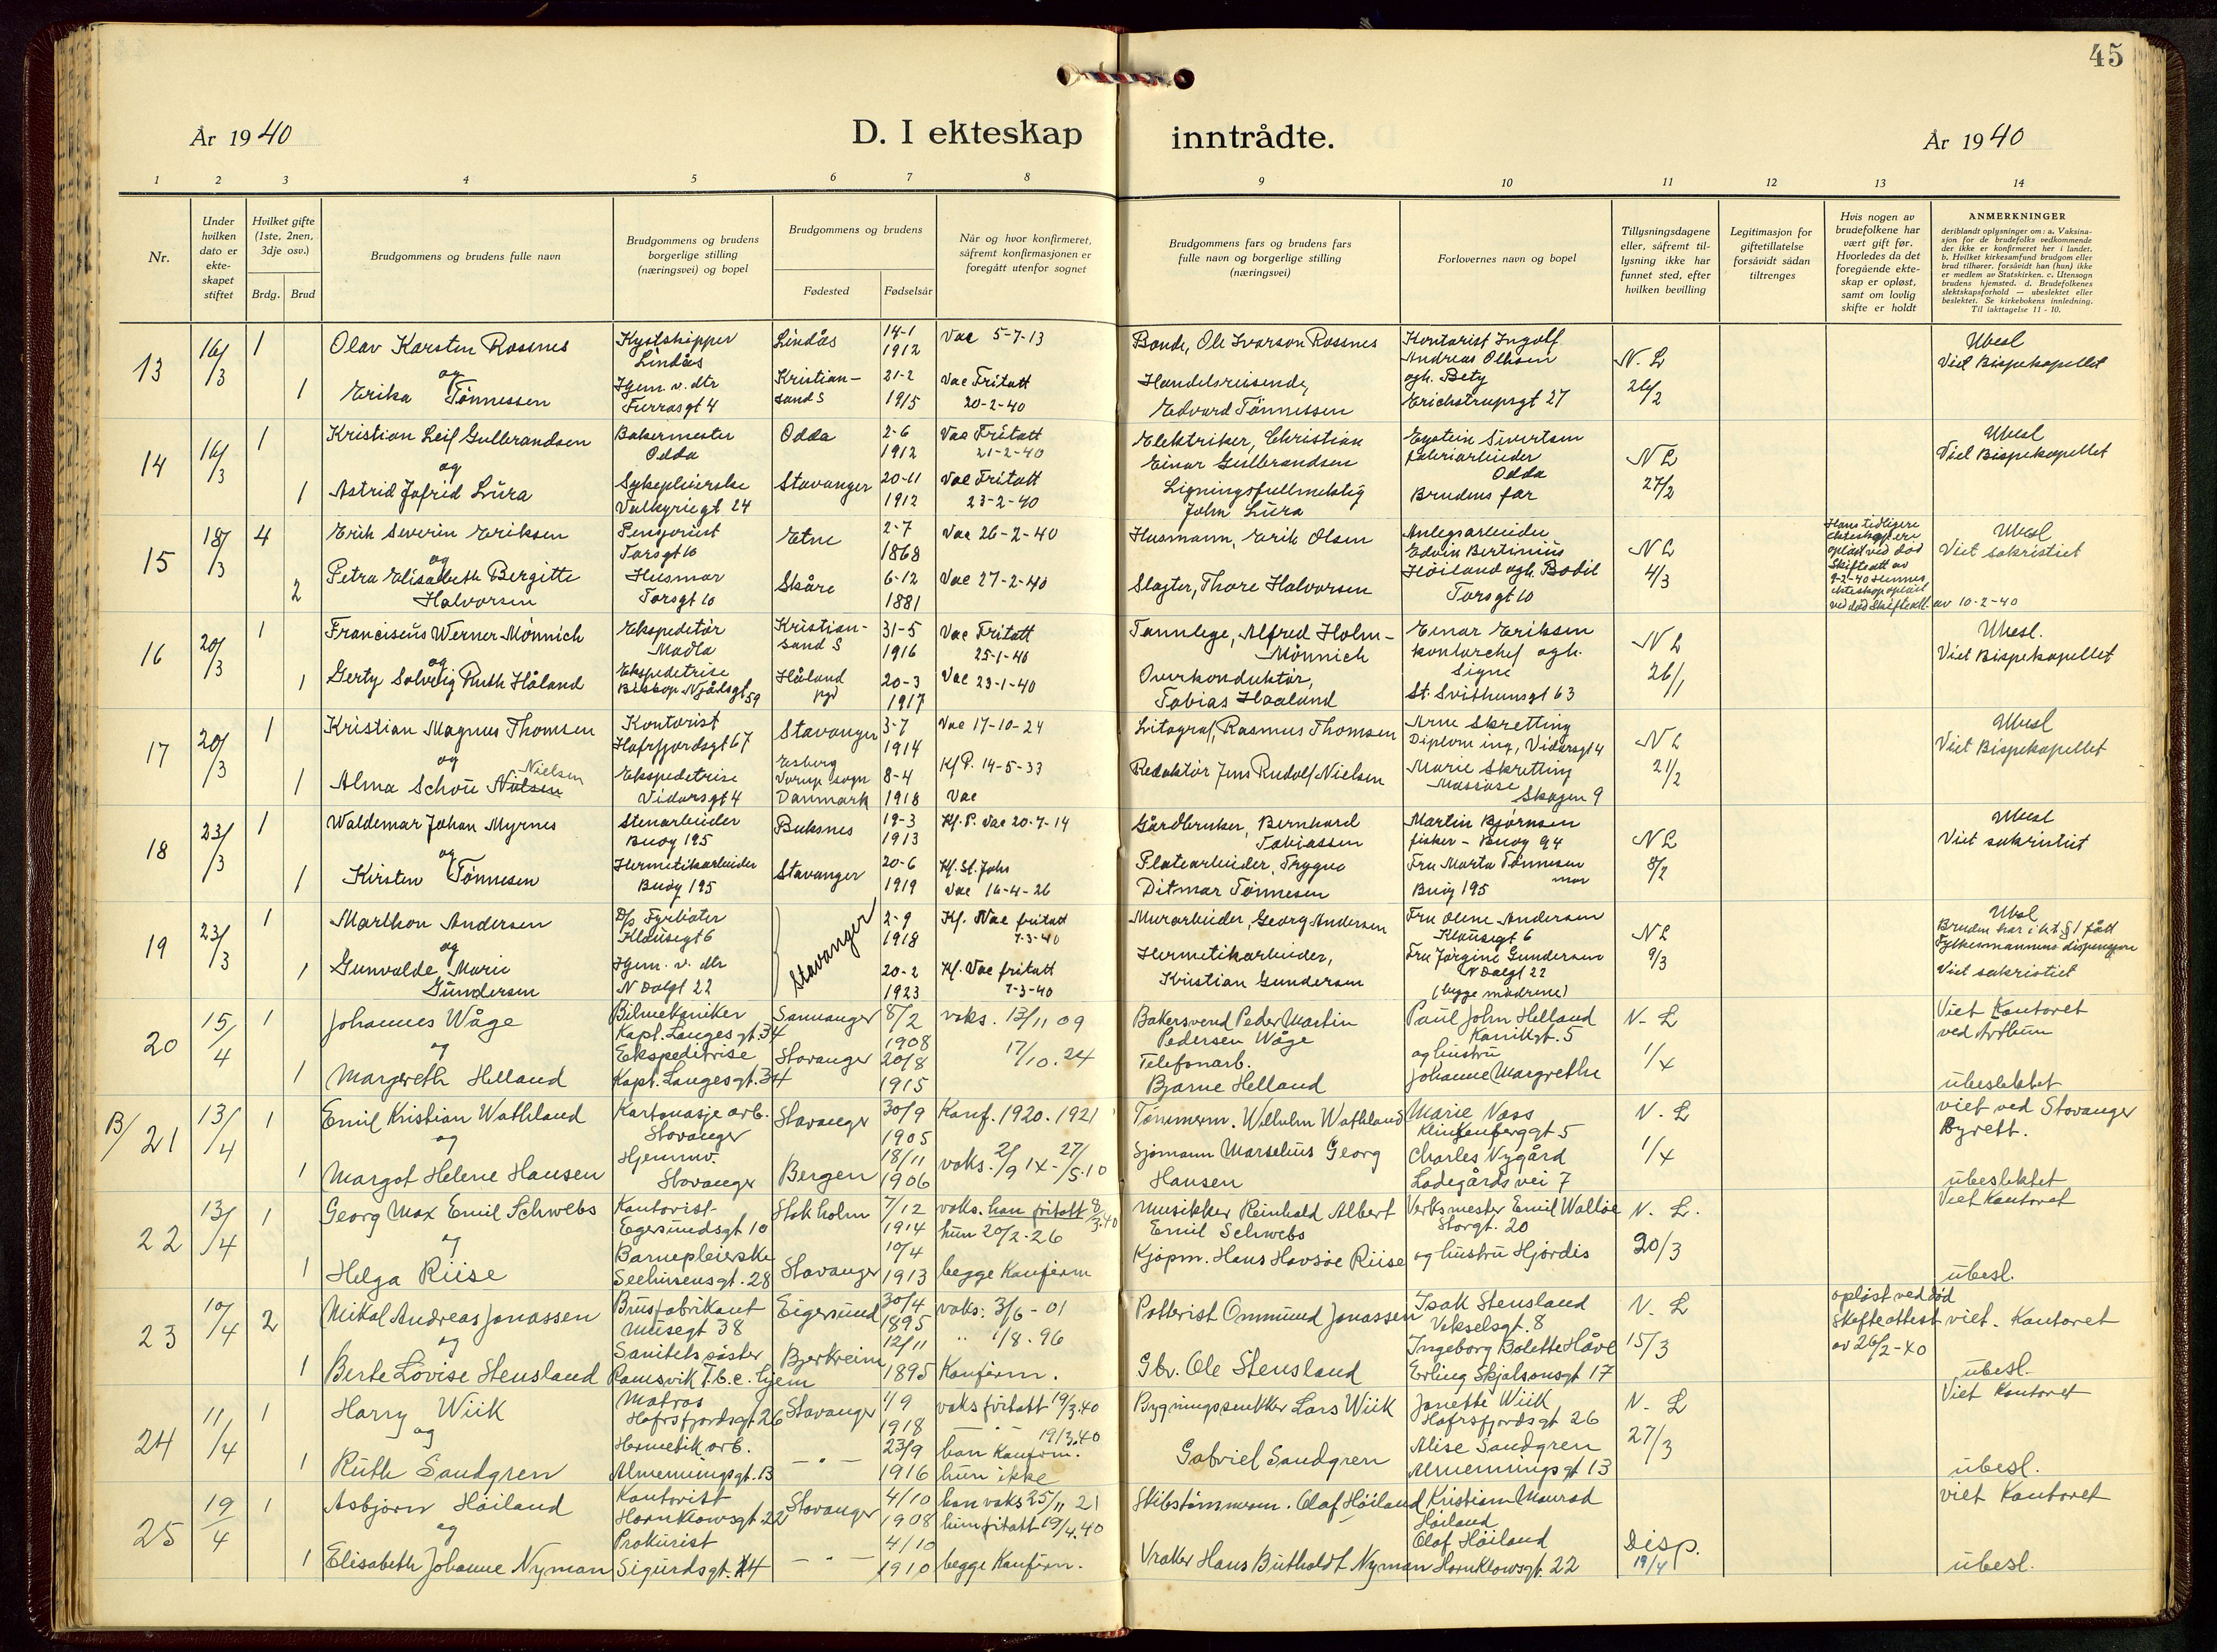 45
År 1940
D. I ekteskap inntrådte.
År 1940
1 2 3 4 5 6 7 8 9 10 11 12 13 14
Nr.
Under hvilken dato er ekte-skapet stiftet
Hvilket gifte (1ste, 2nen, 3dje osv.)
Brdg. Brud
Brudgommens og brudens fulle navn
Brudgommens og brudens borgerlige stilling (næringsvei) og bopel
Brudgommens og brudens
Fødested Fødselsår
Når og hvor konfirmeret, såfremt konfirmasjonen er foregått utenfor sognet
Brudgommens fars og brudens fars fulle navn og borgerlige stilling (næringsvei)
Forlovernes navn og bopel
Tillysningsdagene eller, såfremt til-lysning ikke har funnet sted, efter hvilken bevilling
Legitimasjon for giftetillatelse forsåvidt sådan tiltrenges
Hvis nogen av brudefolkene har vært gift før. Hvorledes da det foregående ekte-skap er opløst, samt om lovlig skifte er holdt
ANMERKNINGER
deriblandt oplysninger om: a. Vaksina-sjon for de brudefolks vedkommende der ikke er konfirmeret her i landet. b. Hvilket kirkesamfund brudgom eller brud tilhører, forsåvidt han (hun) ikke er medlem av Statskirken. c. Utensogn brudens hjemsted. d. Brudefolkenes slektskapsforhold — ubeslektet eller beslektet. Se kirkebokens innledning. Til iakttagelse 11 - 10.
13 16/3 1 Olav Karsten Rosnes Kystskipper Lindås Lindås 14-1 1912 Vac 5-7-13 Bonde, Ole Ivarson Rosnes Kontorist Ingolf Andreas Olsen N. L Ubesl
og
1 Erika Tönnessen Hjem. v. dtr Furrasgt 4 Kristian-sand S 21-2 1915 Vac Fritatt 20-2-40 Handelsreisende, Edvard Tönnessen ogh. Bety Erichstrupsgt 27 26/2 Viet Bispekapellet
14 16/3 1 Kristian Leif Gulbrandsen Bakermester Odda Odda 2-6 1912 Vac Fritatt 21-2-40 Elektriker, Christian Einar Gulbrandsen Eystein Sivertsen Odda N L Ubesl
og
1 Astrid Jofrid Lura Sykepleierske Valkyriegt 24 Stavanger 20-11 1912 Vac Fritatt 23-2-40 Ligningsfullmektig John Lura Brudens far 27/2 Viet Bispekapellet
15 18/3 4 Erik Severin Eriksen Pensjonist Torsgt 10 Etne 2-7 1868 Vac 26-2-40 Husmann, Erik Olsen Anlegsarbeider Edvin Bertinius N L Hans tidligere ekteskap er opløst ved død Skifteatt av 9-2-40 Hennes ekteskap opløst ved død Skifteatt. av 10-2-40 Ubesl
og
2 Petra Elisabeth Bergitte Halvorsen Husmor Torsgt 10 Skåre 6-12 1881 Vac 27-2-40 Slagter, Thore Halvorsen Høiland ogh. Bodil Torsgt 10 4/3 Viet sakristiet
16 20/3 1 Franciscus Werner Mönnich Ekspeditör Madla Kristian-sand S 31-5 1916 Vac Fritatt 25-1-40 Tannlege, Alfred Holm-Mönnich Einar Eriksen kontorchef ogh. N L Ubesl.
og
1 Gerty Solveig Ruth Håland Ekspedetrise Biskop Njådsgt 59 Håland pgd 20-3 1917 Vac 23-1-40 Overkonduktör, Tobias Haaland Signe St. Svithunsgt 63 26/1 Viet Bispekapellet
17 20/3 1 Kristian Magnus Thomsen Kontorist Hafrsfjordsgt 67 Stavanger 3-7 1914 Vac 17-10-24 Litograf, Rasmus Thomsen Arne Skretting Diplom ing, Vidarsgt 4 N L Ubesl
og
1 Alma Schou Nilsen Nielsen Ekspedetrise Vidarsgt 4 Esberg sogn Danmark 8-4 1918 Kf P. 14-5-33 Vac Redaktör Jens Rudolf Nielsen Marie Skretting Massøse Skagen 9 21/2 Viet Bispekapellet
18 23/3 1 Waldemar Johan Myrnes Stenarbeider Buøy 195 Buksnes 19-3 1913 Kf. P. Vac 20-7-14 Gårdbruker, Bernhard Tobiassen Martin Bjørnsen fisker - Buøy 94 N L Ubesl
og
1 Kirsten Tönnesen Hermetikarbeider Buøy 195 Stavanger 20-6 1919 Kf. St. Johs Vac 16-4-26 Platearbeider, Trygve Ditmar Tönnesen Fru Marta Tönnesen mor Buøy 195 8/2 Viet sakristiet
19 23/3 1 Marthon Andersen D/s Fyrböter Klausegt 6 Stavanger 2-9 1918 Kf. Vac fritatt 7-3-40 Murarbeider, Georg Andersen Fru Olene Andersen Klausegt 6 N L Ubesl
og
1 Gunvalde Marie Gundersen Hjem. v. dtr N Dalgt 22 20-2 1923 Kf. Vac fritatt 7-3-40 Hermetikarbeider, Kristian Gundersen Fru Jörgine Gundersen N Dalgt 22 (begge mödrene) 9/3 Bruden har i h.t. § 1 fått Fylkesmannens dispensjon Viet sakristiet
20 15/4 1 Johannes Wåge Bilmekaniker Kapt. Langes gt. 34 Samnanger 8/2 1908 vaks. 13/11 09 Bakersvend Peder Martin Pedersen Wåge Paul John Helland Kanikgt. 5 N. L Viet Kontoret
og
1 Margreth Helland Ekspeditrise Kapt. Langes gt. 34 Stavanger 20/8 1915 17/10. 24 Telefonarb. Bjarne Helland og hustru Johanne Margrethe 1/4 ubeslektet
B/ 21 13/4 1 Emil Kristian Wathland Kartonasje arb. Stavanger Stavanger 30/9 1905 Konf. 1920. 1921 Tömmerm. Wilhelm Wathland Marie Næss Klinkenberggt 5 N. L viet ved Stavanger Byrett.
og
1 Margot Helene Hansen Hjemmv. Stavanger Bergen 18/11 1906 Sjömann Marselius Georg Hansen Charles Nygård Ladegårds vei 7 1/4 ubeslektet
22 13/4 1 Georg Max Emil Schwebs Kontorist Egersundsgt 10 Stokholm 7/12 1914 vaks. han fritatt 8/3.40 hun 20/2-26 Musikker Reinhold Albert Emil Schwebs Verksmester Emil Walløe Storgt. 20 N. L. Viet Kontoret
og
1 Helga Riise Barnepleierske Seehusensgt. 28 Stavanger 10/4 1913 begge Konfirm Kjöpm. Hans Havsøe Riise og hustru Hjördis 20/3 ubesl.
23 10/4 2 Mikal Andreas Jonassen Brusfabrikant Musegt 38 Eigersund 30/4 1895 vaks: 3/6 - 01 Potterist Ommund Jonassen Isak Stensland Vekselsgt. 8 N. L opløst ved død Skifteattest av 26/2-40 viet. Kontoret
og
1 Berte Lovise Stensland Sanitetssöster Ramsvik T.b.c. hjem Bjerkreim 12/11 1895 " 1/8. 96 Konfirm. Gbr. Ole Stensland Ingeborg Bolette Håve Erling Skjalsonsgt 17 15/3 ubesl.
24 11/4 1 Harry Wiik Matros Hafrsfjordsgt 26 Stavanger 4/9 1918 vaks fritatt 19/3.40 Bygningssnekker Lars Wiik Janette Wiik Hafrsfjordsgt 26 N. L Viet Kontoret
og
1 Ruth Sandgren Hermetik arb. Almenningsgt. 13 — " — 23/9 1916 19/3.40 han Konfirm. hun ikke Gabriel Sandgren Alise Sandgren Almenningsgt 13 27/3 ubesl.
25 19/4 1 Asbjørn Höiland Kontorist Hornklowsgt. 22 Stavanger 4/10 1908 han vaks 25/11 21 hun fritatt 19/4.40 Skibstömmerm. Olaf Höiland Kristian Höiland viet Kontoret
og
1 Elisabeth Johanne Nyman Prokurist Sigurdsgt. 14 — " — 4/10 1910 begge Konfirm. Vraker Hans Nyman Olaf Höiland Hornklowsgt. 22 Disp. 19/4 ubesl.